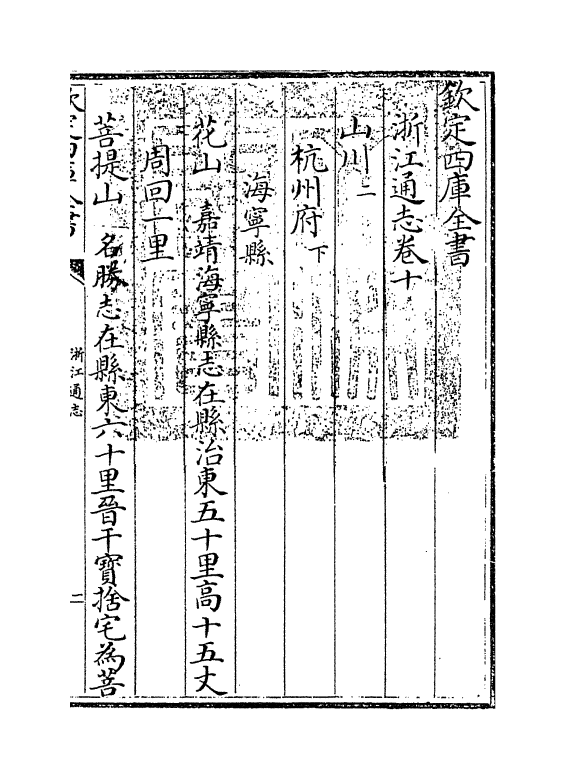 欽定四庫全書
浙江通志卷十
山川二
杭州府下
海寧縣
花山 嘉靖海寧縣志在縣治東五十里高十五丈
周回一里
菩提山 名勝志在縣東六十里晉干寶捨宅為菩
欽定四庫全書 浙江通志 二